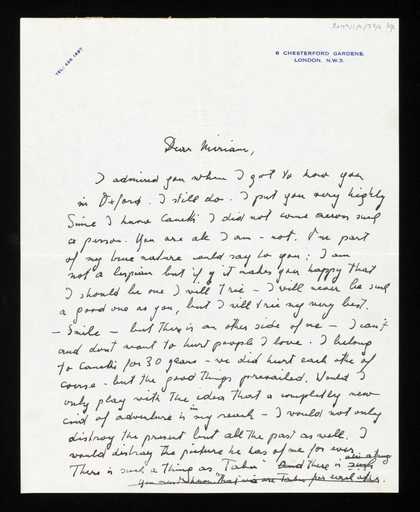 TEL: 435 1487
6 CHESTERFORD GARDENS,
LONDON, N.W.3.
Dear Miriam,
I admired you when I got to know you
in Oxford. I still do. I put you very highly
Since I know Canetti I did not come across such
a person. You are all I am - not. One part
of my true nature would say to you: I am
not a lespien but if it makes you happy that
I should be one I will trie - I will never be such
a good one as you, but I will trie my very best.
- Smile - but there is an other side of me - I can't
and dont want to hurt people I love. I belong
to Canetti for 30 years - we did hurt each other of
course - but the good things prevailed. Would I
only play with the idea that a completly new
cind of adventure is in my reach - I would not only
distroy the present but all the past as well. I
would distroy the picture he has of me for ever.
There is such a thing as "Tabu" And there is such